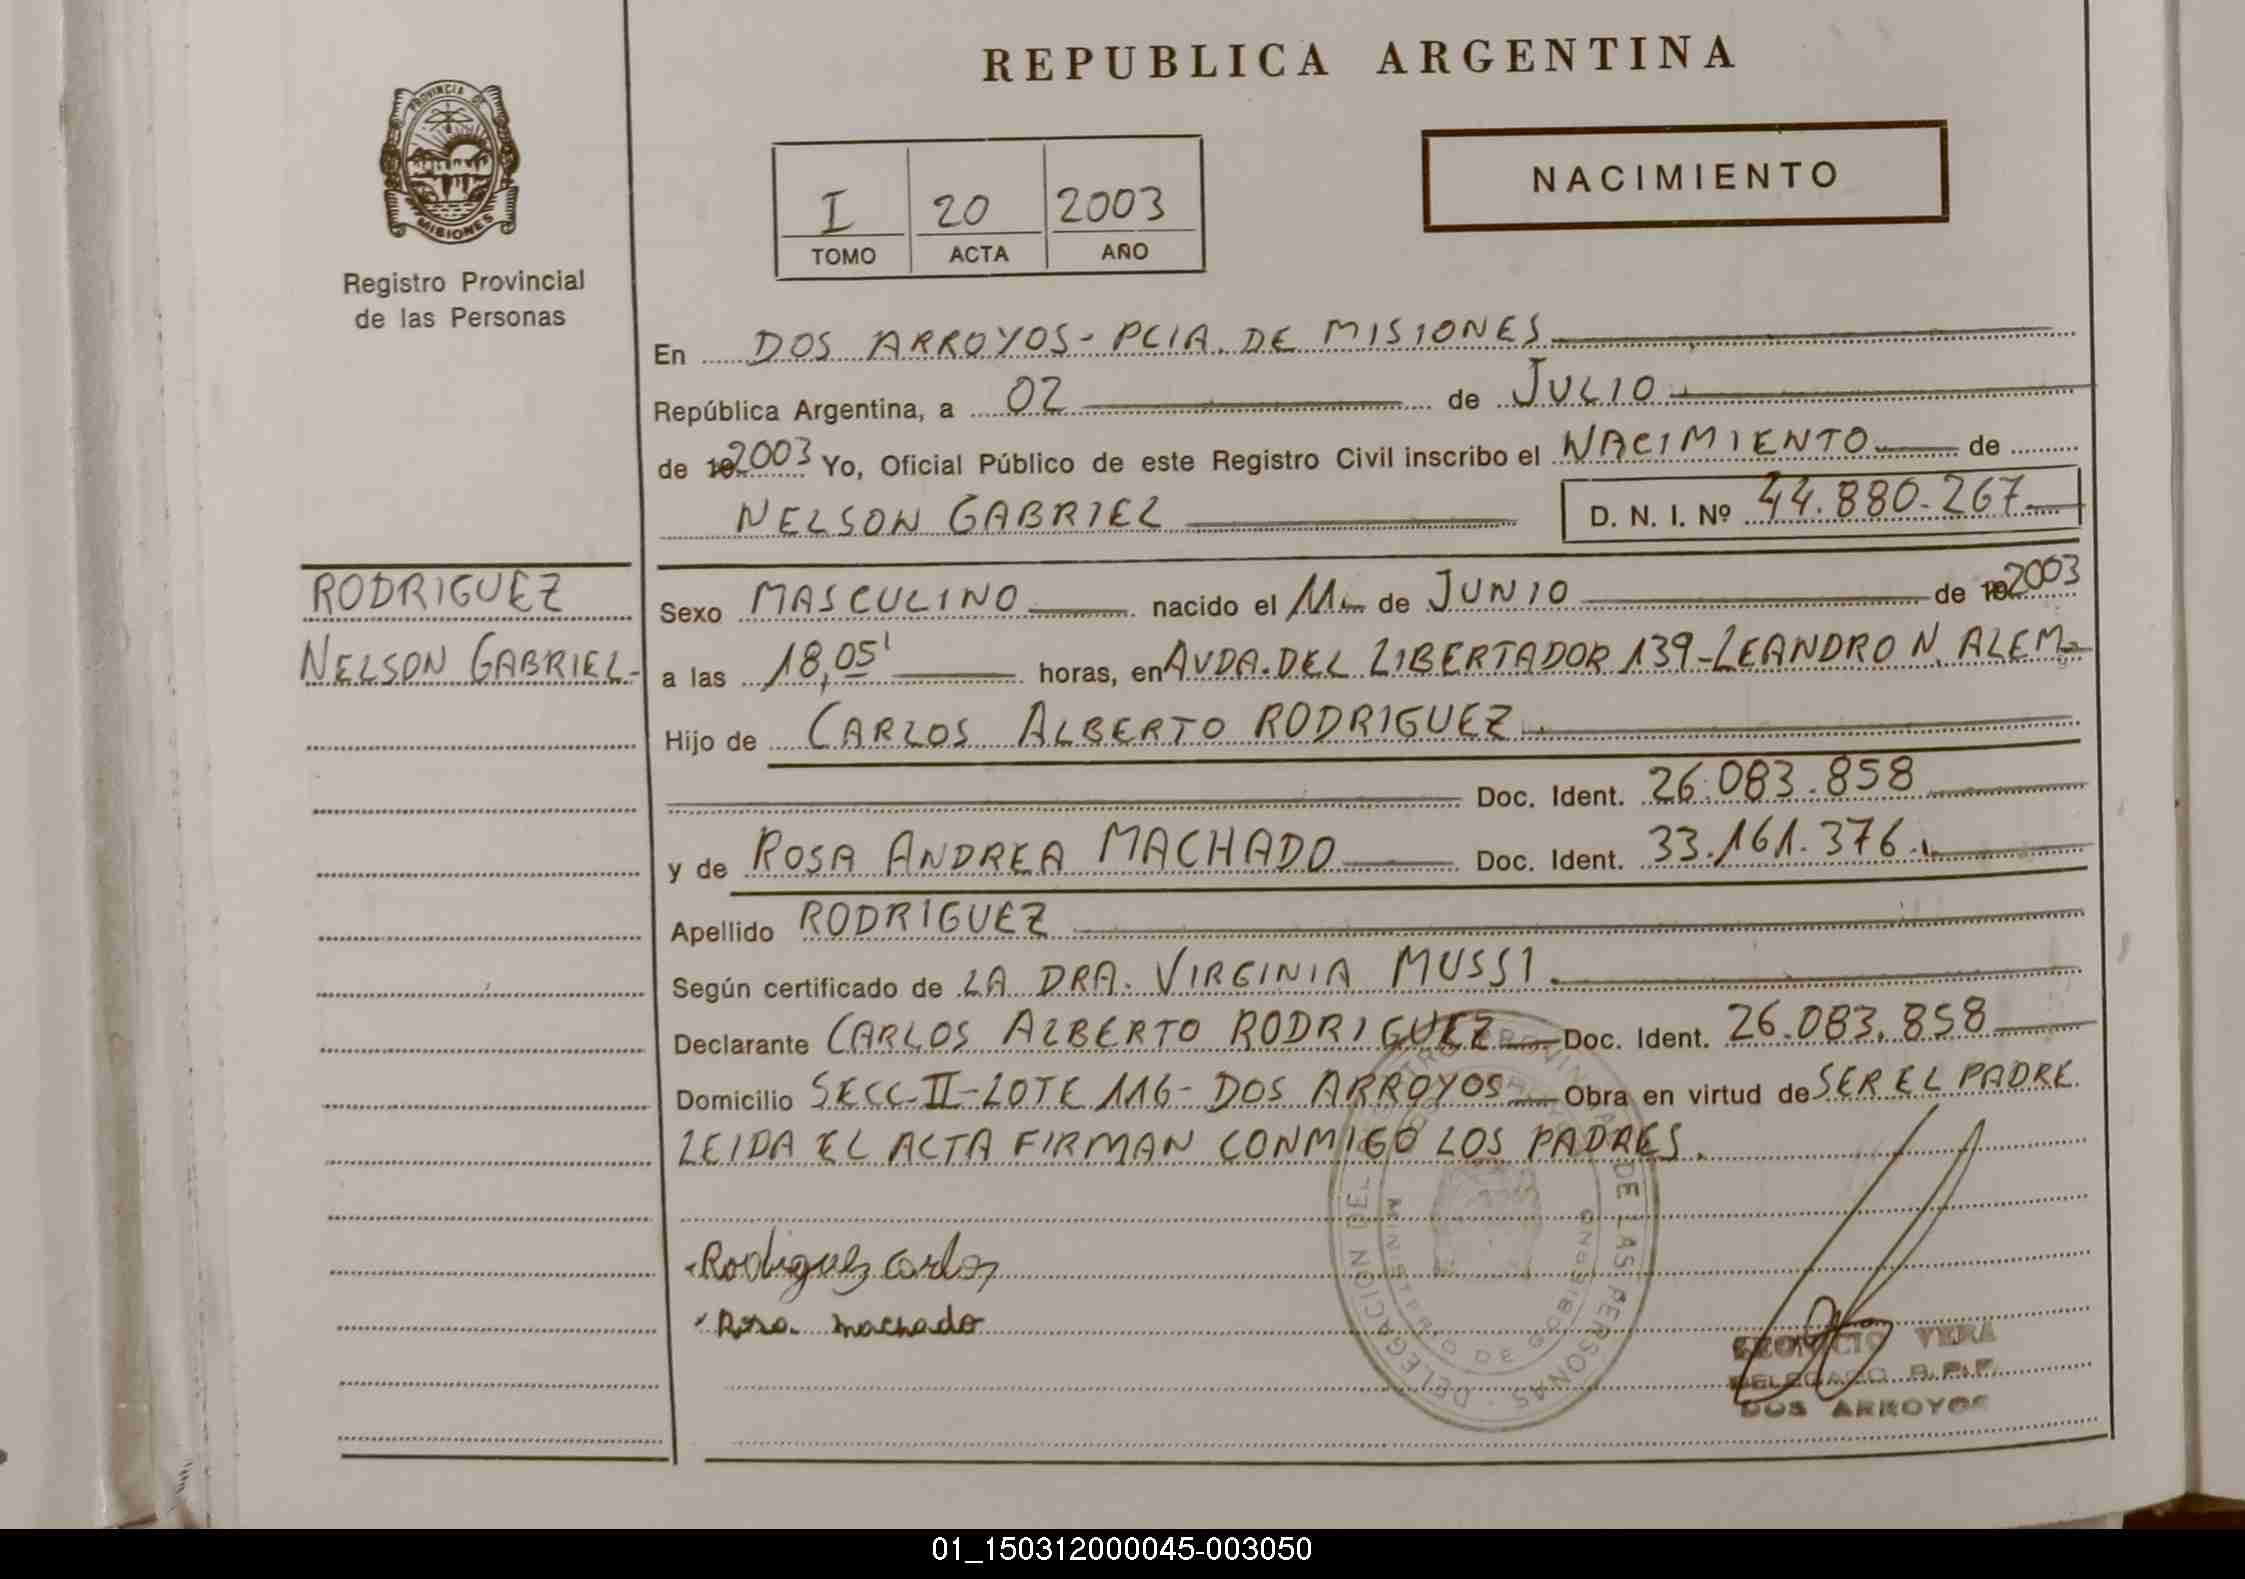 REPUBLICA ARGENTINA
PROVINCIA DE
MISIONES
Registro Provincial
de las Personas
I 20 2003
TOMO ACTA AÑO
NACIMIENTO
En DOS ARROYOS - PCIA. DE MISIONES
República Argentina, a 02 de JULIO
de 19 2003 Yo, Oficial Público de este Registro Civil inscribo el NACIMIENTO de
NELSON GABRIEL D. N. I. Nº 44.880.267
RODRIGUEZ
NELSON GABRIEL-
Sexo MASCULINO nacido el 11 de JUNIO de 19 2003
a las 18,05' horas, en AVDA. DEL LIBERTADOR 139-LEANDRO N. ALEM
Hijo de CARLOS ALBERTO RODRIGUEZ
Doc. Ident. 26.083.858
y de ROSA ANDREA MACHADO Doc. Ident. 33.161.376
Apellido RODRIGUEZ
Según certificado de LA DRA. VIRGINIA MUSSI
Declarante CARLOS ALBERTO RODRIGUEZ Doc. Ident. 26.083.858
Domicilio SECC-II-LOTE 116- DOS ARROYOS Obra en virtud de SER EL PADRE
LEIDA EL ACTA FIRMAN CONMIGO LOS PADRES.
Rodriguez Carlos
Rosa machado
DELEGACION DEL DE LAS PERSONAS
MINISTERIO DE GOBIERNO
VERA
DELEGADO R.P.P.
DOS ARROYOS
01_150312000045-003050